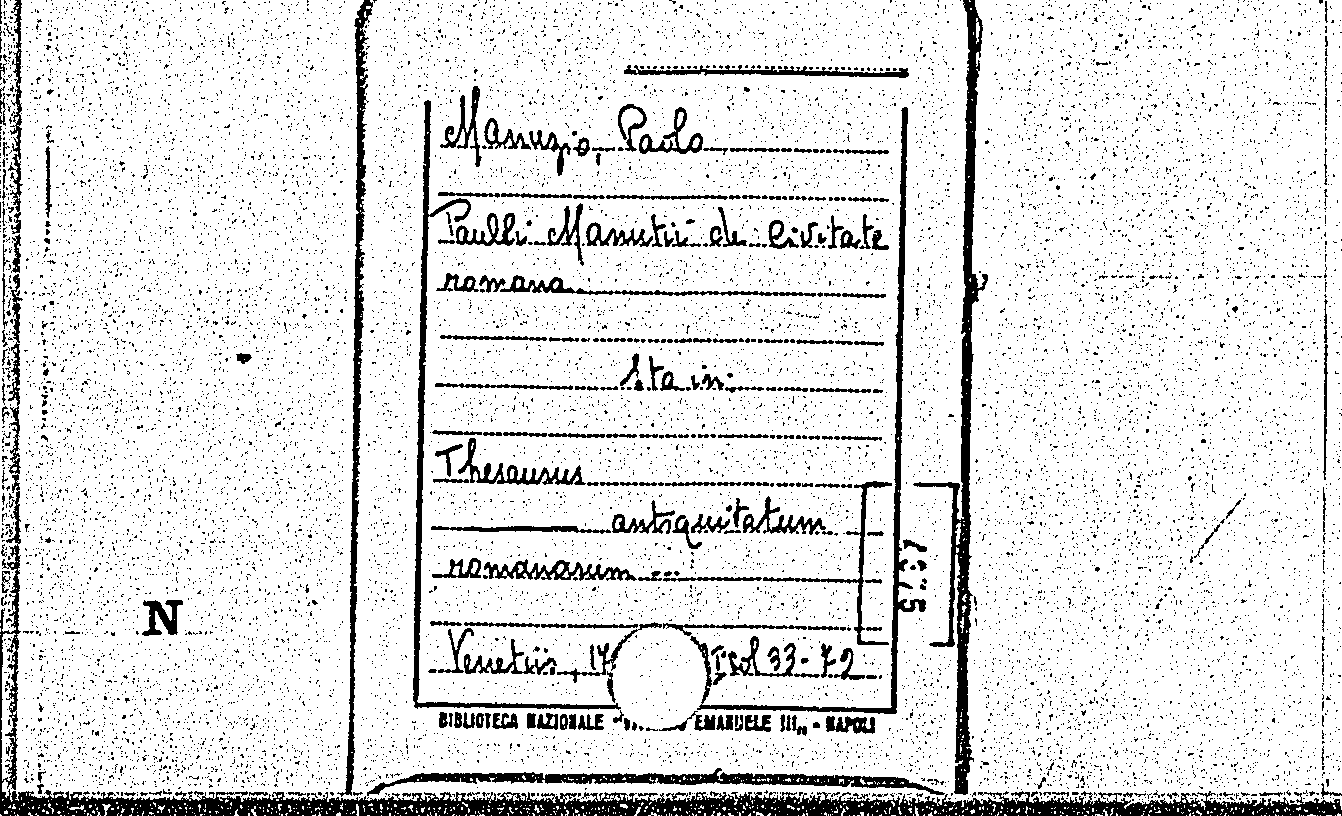 Manuzio, Paolo
Paulli Manutii de civitate
romana.
Sta in:
Thesaurus
antiquitatum
romanarum ...
Venetiis, col 33-72
BIBLIOTECA NAZIONALE EMANUELE III,, - NAPOLI
N